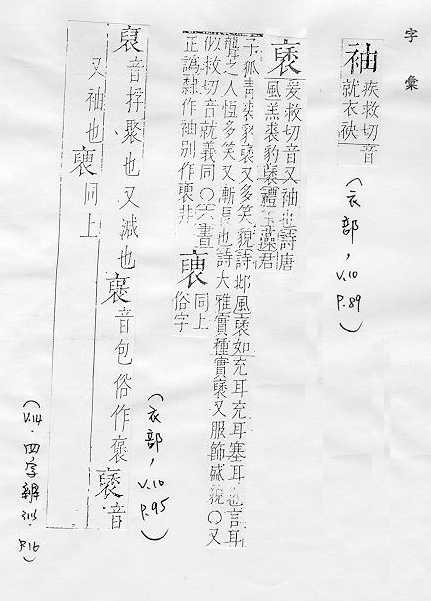 字彙
袖 疾救切音
就衣袂
（衣部，V.10 P.89）
褎 爰救切音又袖也詩唐
風羔裘豹褎禮玉藻君
子狐青裘豹褎又多笑貌詩邶風褎如充耳充耳塞耳也言耳
聾之人恆多笑又漸長也詩大雅實種實褎又服飾盛貌○又
似救切音就義同○六書
正譌隸作袖別作褏非
褏 同上
俗字
（衣部，V.10 P.95）
裒音抔聚也又減也褒音包俗作襃褎音
又袖也褏同上
（V.14．四字辨似．P.16）